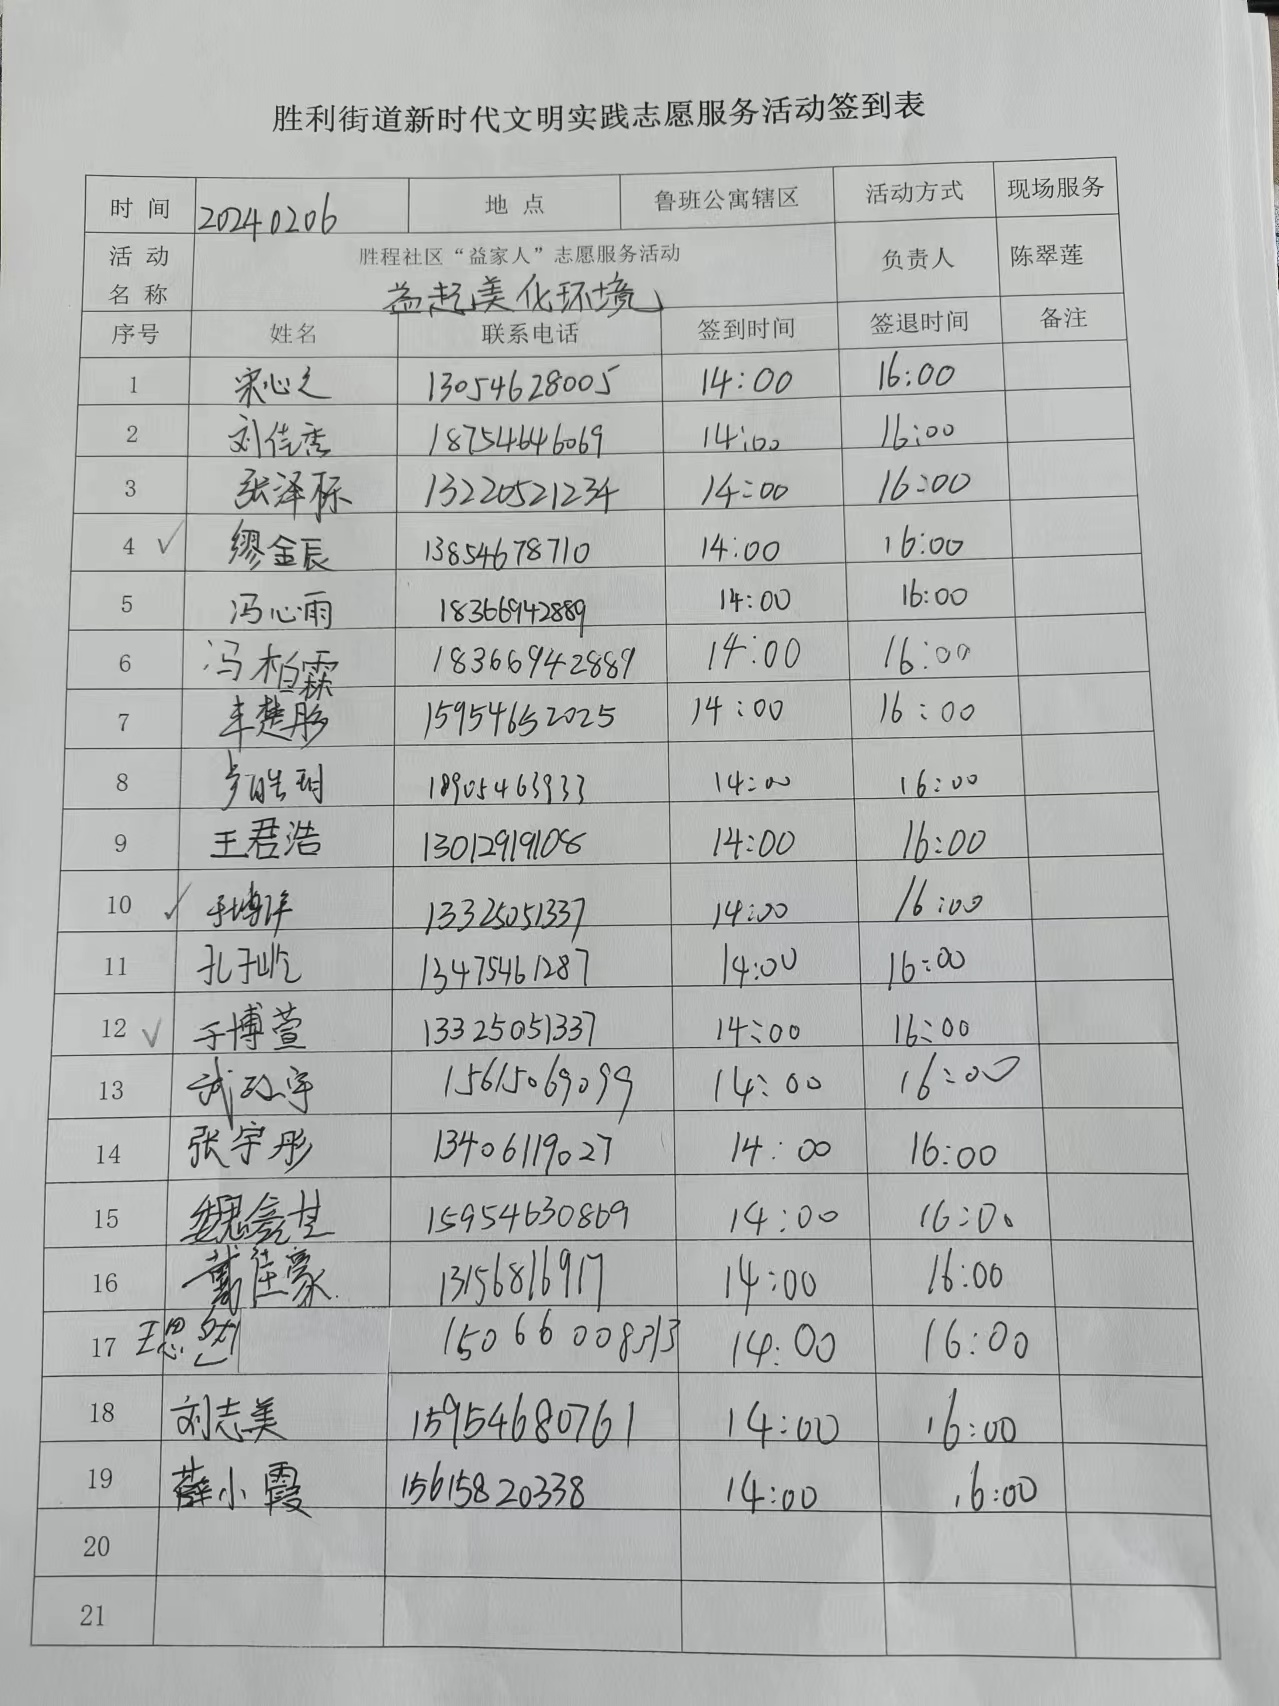 胜利街道新时代文明实践志愿服务活动签到表
时 间 20240206 地 点 鲁班公寓辖区 活动方式 现场服务
活 动 名 称 胜程社区“益家人”志愿服务活动 负责人 陈翠莲
益起美化环境
序号 姓名 联系电话 签到时间 签退时间 备注
1 宋心之 13054628005 14:00 16:00
2 刘佳秀 18754646069 14:00 16:00
3 张泽标 13220521234 14:00 16:00
4 ✓ 缪金辰 13854678710 14:00 16:00
5 冯心雨 18366942889 14:00 16:00
6 冯柏霖 18366942889 14:00 16:00
7 车楚彤 15954652025 14:00 16:00
8 18905463933 14:00 16:00
9 王君浩 13012919108 14:00 16:00
10 ✓ 于博洋 13325051337 14:00 16:00
11 孔于屹 13475461287 14:00 16:00
12 ✓ 于博萱 13325051337 14:00 16:00
13 武政宇 15615069099 14:00 16:00
14 张宇彤 13406119027 14:00 16:00
15 魏 15954630869 14:00 16:00
16 戴佳豪 13156816917 14:00 16:00
17 王思 14:00 16:00
18 刘志美 15954680761 14:00 16:00
19 薛小霞 15615820338 14:00 16:00
20
21